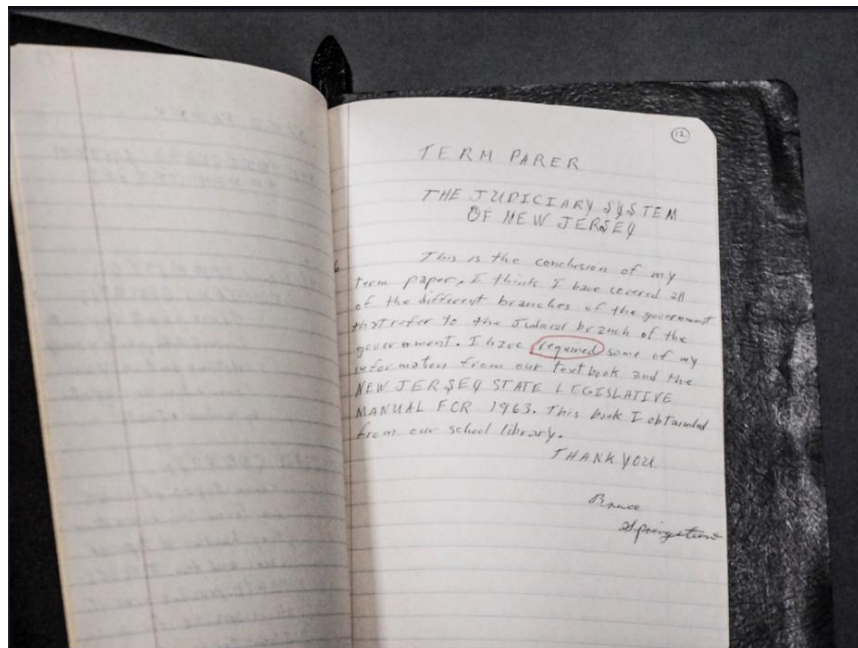 12.
TERM PAPER
THE JUDICIARY SYSTEM
OF NEW JERSEY
This is the conclusion of my
term paper. I think I have covered all
of the different branches of the government
that refer to the Judical branch of the
government. I have required some of my
information from our textbook and the
NEW JERSEY STATE LEGISLATIVE
MANUAL FOR 1963. This book I obtained
from our school library.
THANK YOU.
Bruce
Springsteen